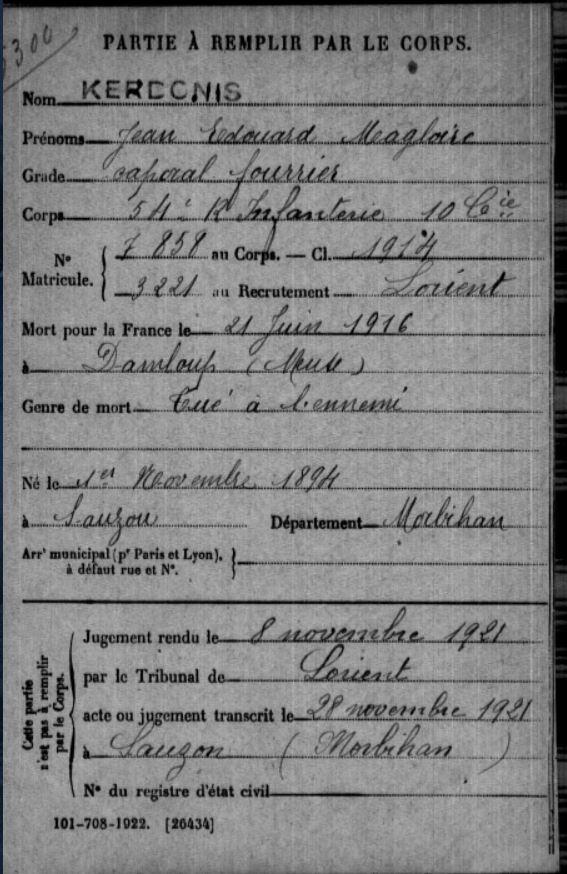 5300
PARTIE À REMPLIR PAR LE CORPS.
Nom KERDONIS
Prénoms Jean Edouard Magloire
Grade caporal fourrier
Corps 54e R Infanterie 10 Cie
N° Matricule. { 7 858 au Corps. — Cl. 1914
3221 au Recrutement Lorient
Mort pour la France le 21 Juin 1916
à Damloup (Meuse)
Genre de mort Tué à l'ennemi
Né le 1er Novembre 1894
à Sauzon Département Morbihan
Arrt municipal (pr Paris et Lyon), }
à défaut rue et N°.
Cette partie n'est pas à remplir par le Corps.
Jugement rendu le 8 novembre 1921
par le Tribunal de Lorient
acte ou jugement transcrit le 28 novembre 1921
à Sauzon (Morbihan)
N° du registre d'état civil
101-708-1922. [26434]